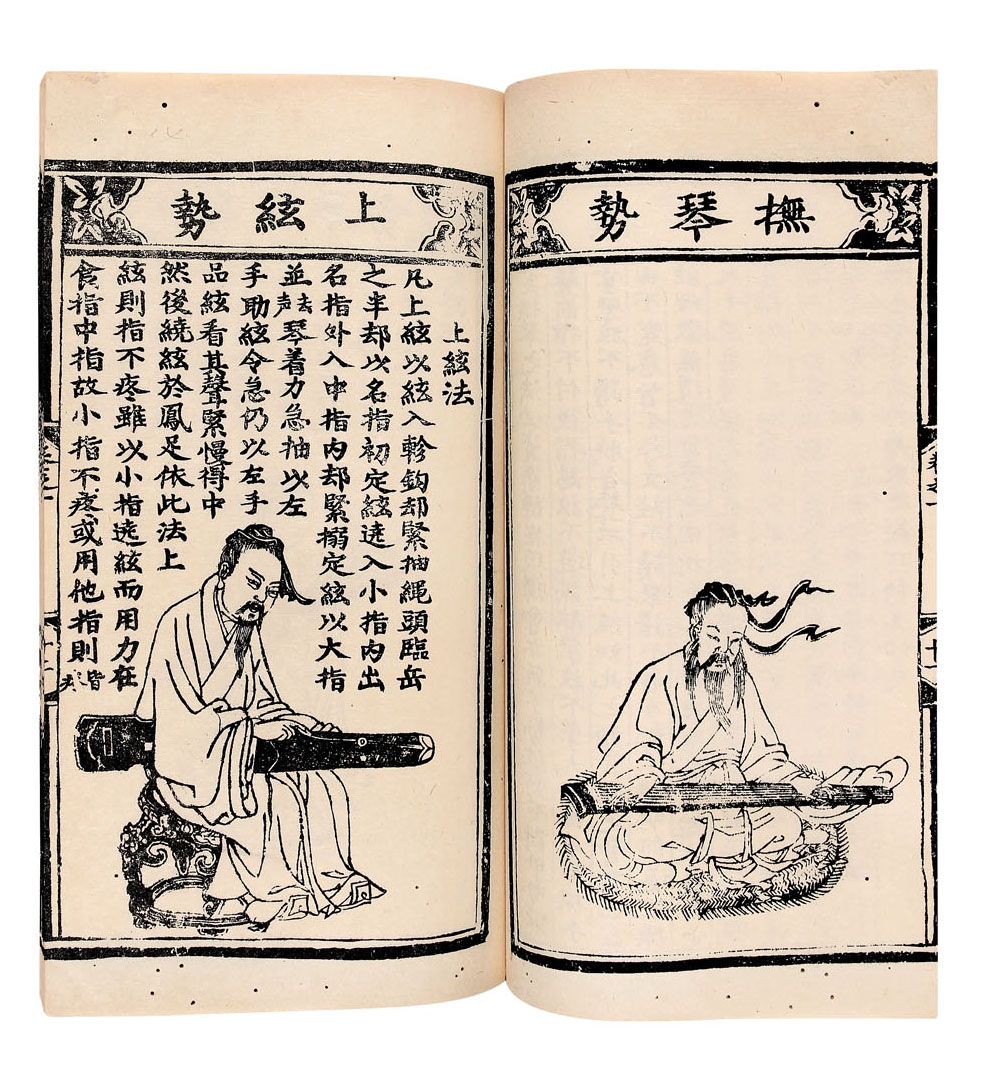 撫琴勢
上絃勢
上絃法
凡上絃以絃入軫鈎却緊抽繩頭臨岳
之半却以名指初定絃遶入小指内出
名指外入中指内却緊搦定絃以大指
並去声琴着力急抽以左
手助絃令急仍以左手
品絃看其聲緊慢得中
然後繞絃於鳳足依此法上
絃則指不疼雖以小指遶絃而用力在
食指中指故小指不疼或用他指則皆疼